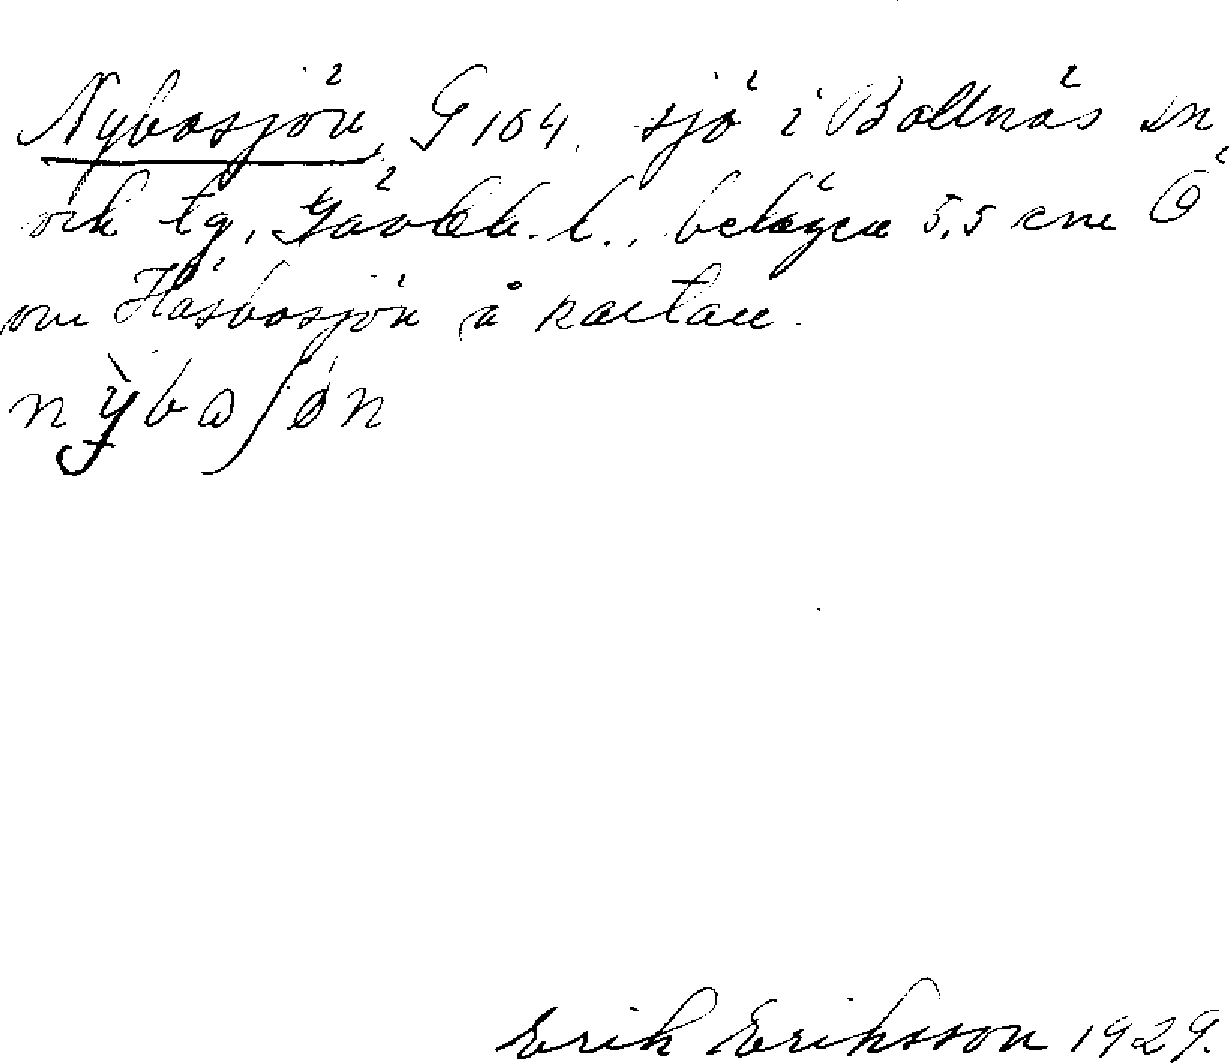 Nybosjön, G 104. sjö i Bollnäs sn
och tg, Gävleb. l., belägen 5,5 cm Ö
om Håsbosjön å kartan.
nỳbɷʃøn
Erik Eriksson 1929.